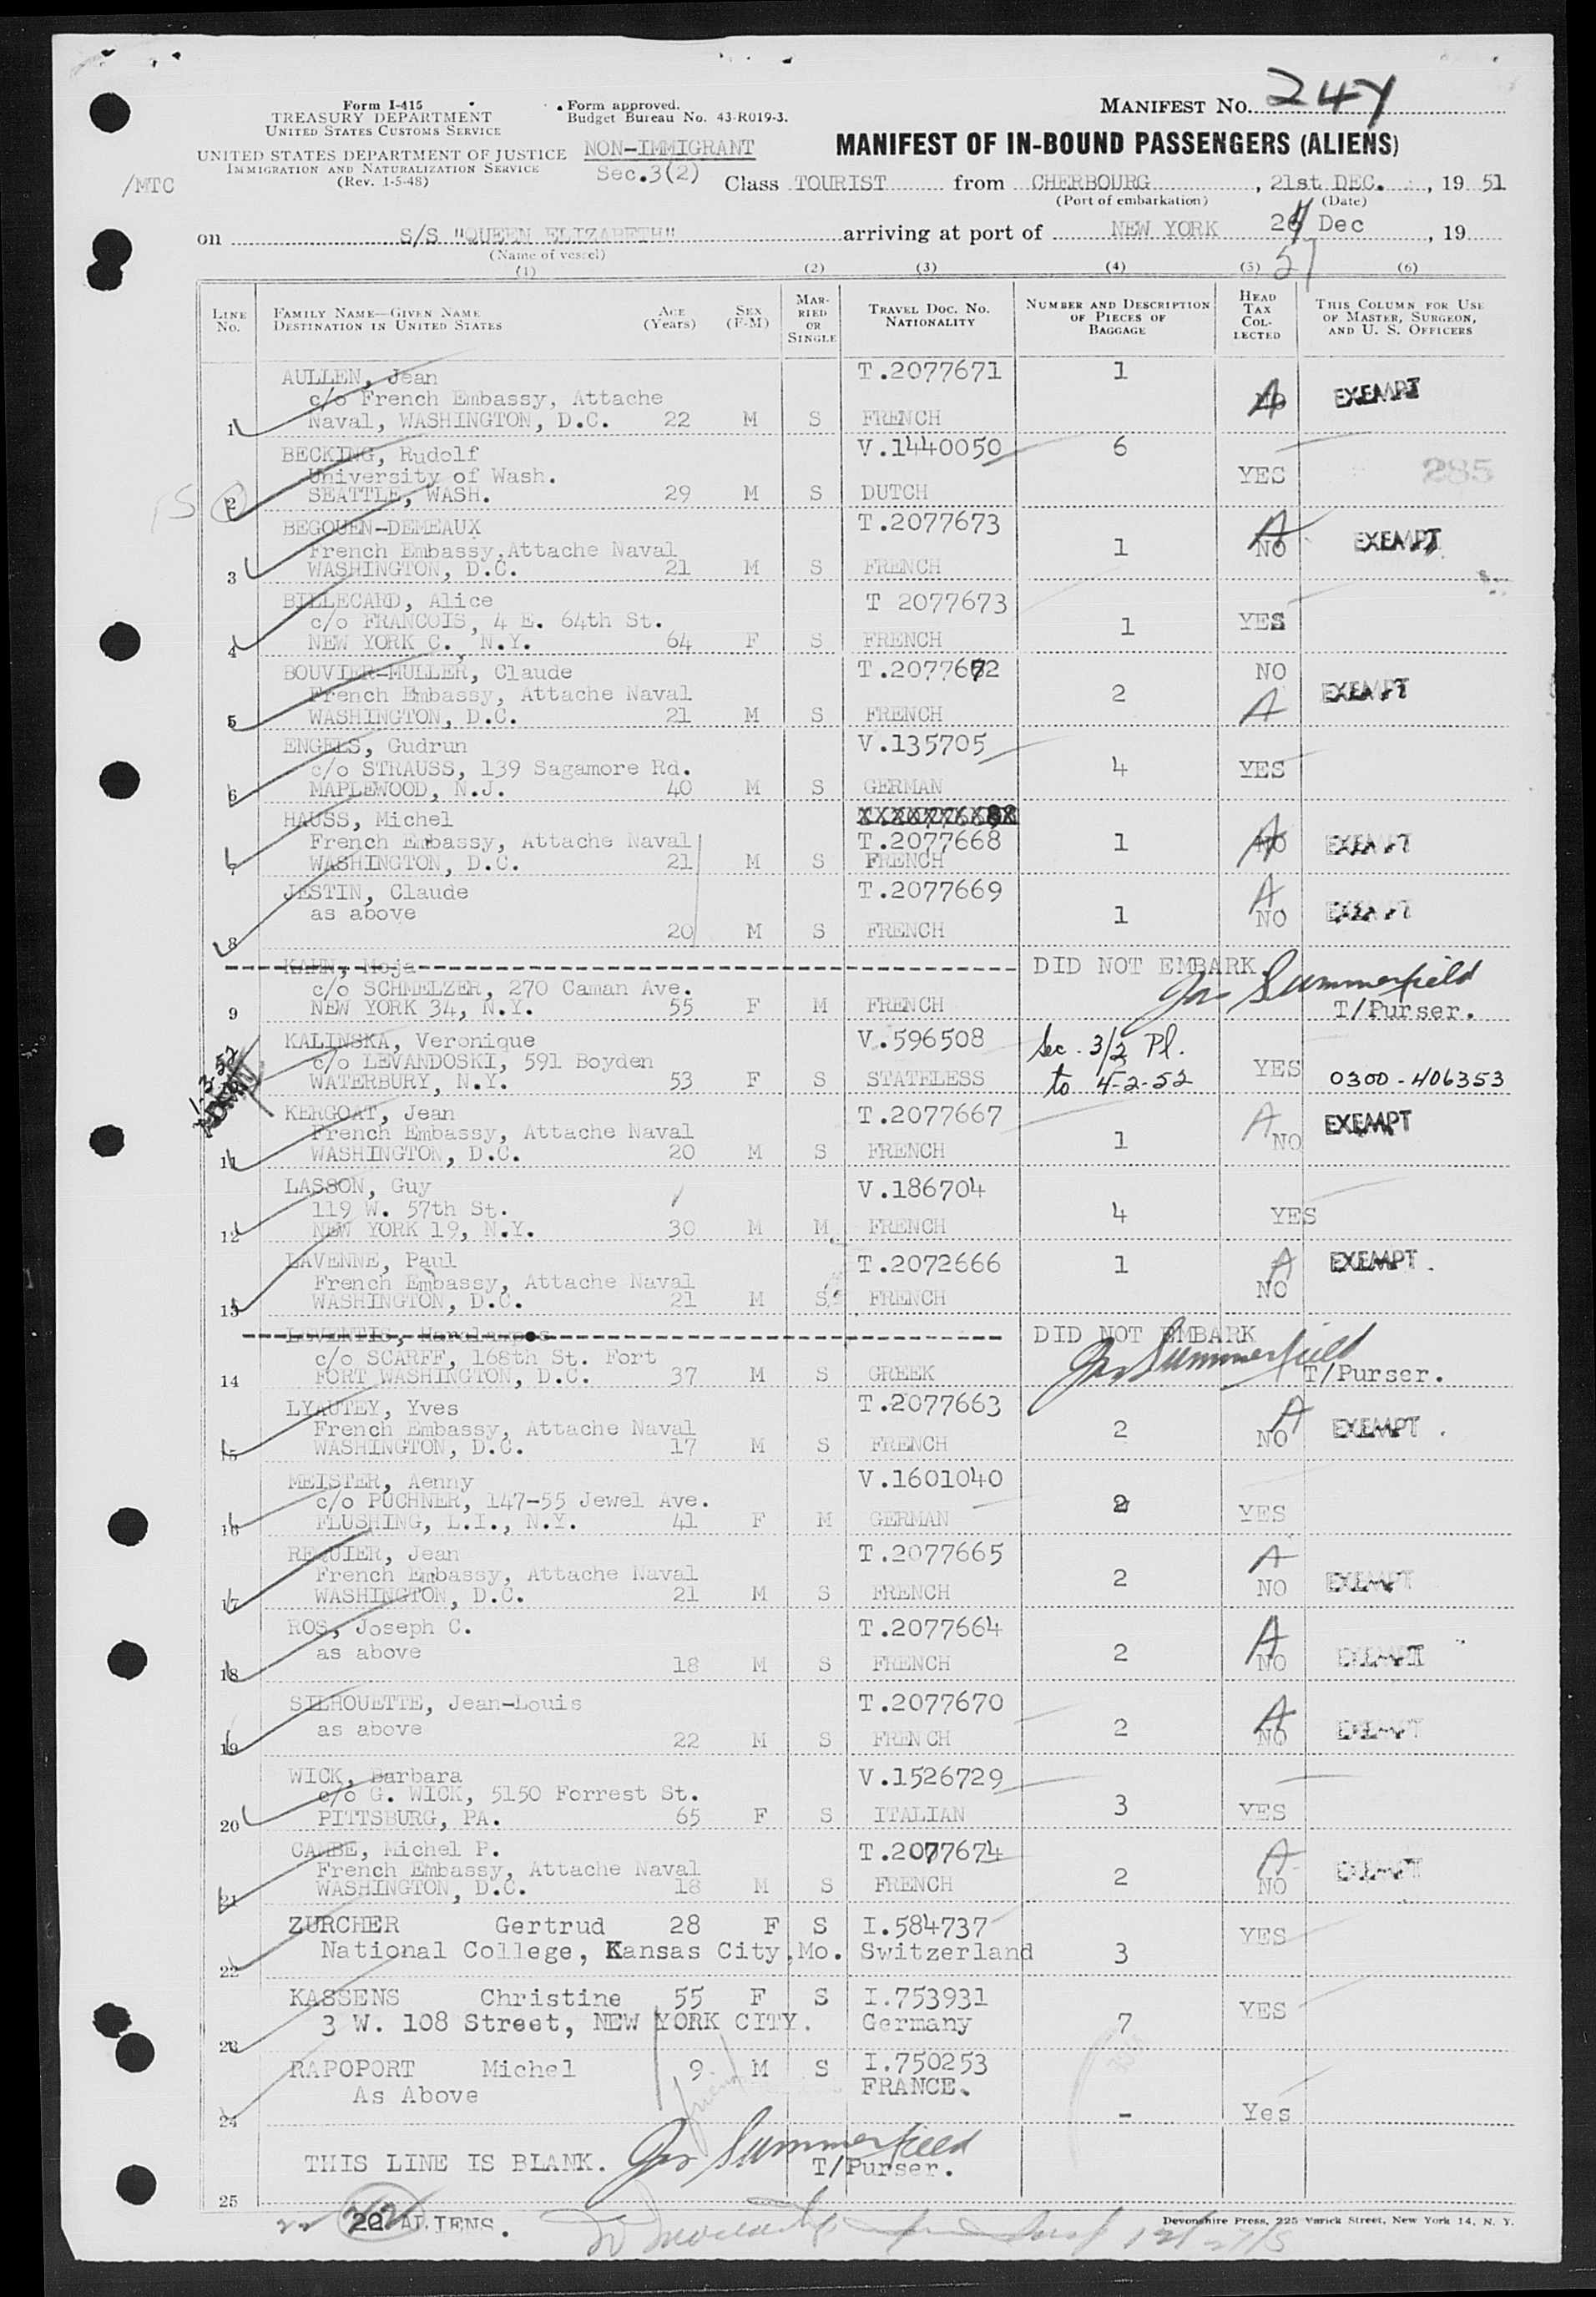 Form I-415
TREASURY DEPARTMENT
UNITED STATES CUSTOMS SERVICE
UNITED STATES DEPARTMENT OF JUSTICE
IMMIGRATION AND NATURALIZATION SERVICE
(Rev. 1-5-48)
/MTC
Form approved.
Budget Bureau No. 43-R019-3.
NON-IMMIGRANT
Sec.3(2)
MANIFEST NO. 244
MANIFEST OF IN-BOUND PASSENGERS (ALIENS)
Class TOURIST from CHERBOURG, 21st DEC., 19 51
(Port of embarkation) (Date)
on S/S "QUEEN ELIZABETH" arriving at port of NEW YORK Dec, 19
(Name of vessel) 51
(1) (2) (3) (4) (5) (6)
LINE No. FAMILY NAME—GIVEN NAME DESTINATION IN UNITED STATES AGE (Years) SEX (F-M) MARRIED OR SINGLE TRAVEL DOC. NO. NATIONALITY NUMBER AND DESCRIPTION OF PIECES OF BAGGAGE HEAD TAX COLLECTED THIS COLUMN FOR USE OF MASTER, SURGEON, AND U. S. OFFICERS
AULLEN, Jean T.2077671 1
c/o French Embassy, Attache A EXEMPT
1 Naval, WASHINGTON, D.C. 22 M S FRENCH
BECKING, Rudolf V.1440050 6
University of Wash. YES 285
2 SEATTLE, WASH. 29 M S DUTCH
BEGOUEN-DEMEAUX T.2077673
French Embassy,Attache Naval 1 A NO EXEMPT
3 WASHINGTON, D.C. 21 M S FRENCH
BILLECARD, Alice T 2077673
c/o FRANCOIS, 4 E. 64th St. 1 YES
4 NEW YORK C., N.Y. 64 F S FRENCH
BOUVIER-MULLER, Claude T.2077672 NO
French Embassy, Attache Naval 2 A EXEMPT
5 WASHINGTON, D.C. 21 M S FRENCH
ENGELS, Gudrun V.135705
c/o STRAUSS, 139 Sagamore Rd. 4 YES
6 MAPLEWOOD, N.J. 40 M S GERMAN
HAUSS, Michel
French Embassy, Attache Naval T.2077668 1 A NO EXEMPT
7 WASHINGTON, D.C. 21 M S FRENCH
JESTIN, Claude T.2077669 A
as above 1 NO EXEMPT
8 20 M S FRENCH
KAHN, Moja DID NOT EMBARK
c/o SCHMELZER, 270 Caman Ave. Jas Summerfield
9 NEW YORK 34, N.Y. 55 F M FRENCH T/Purser.
KALINSKA, Veronique V.596508 Sec. 3/2 Pl.
c/o LEVANDOSKI, 591 Boyden YES
1-3-52 WATERBURY, N.Y. 53 F S STATELESS to 4-2-52 0300-406353
KERGOAT, Jean T.2077667
French Embassy, Attache Naval 1 A NO EXEMPT
11 WASHINGTON, D.C. 20 M S FRENCH
LASSON, Guy V.186704
119 W. 57th St. 4 YES
12 NEW YORK 19, N.Y. 30 M M FRENCH
LAVENNE, Paul T.2072666 1 A EXEMPT.
French Embassy, Attache Naval NO
13 WASHINGTON, D.C. 21 M S FRENCH
LEVENTIS, DID NOT EMBARK
c/o SCARFF, 168th St. Fort Jas Summerfield
14 FORT WASHINGTON, D.C. 37 M S GREEK T/Purser.
LYAUTEY, Yves T.2077663
French Embassy, Attache Naval 2 A NO EXEMPT.
15 WASHINGTON, D.C. 17 M S FRENCH
MEISTER, Aenny V.1601040
c/o PUCHNER, 147-55 Jewel Ave. 2 YES
16 FLUSHING, L.I., N.Y. 41 F M GERMAN
REQUIER, Jean T.2077665 A
French Embassy, Attache Naval 2 NO EXEMPT
17 WASHINGTON, D.C. 21 M S FRENCH
ROS, Joseph C. T.2077664
as above 2 A NO EXEMPT
18 18 M S FRENCH
SILHOUETTE, Jean-Louis T.2077670
as above 2 A NO EXEMPT
19 22 M S FRENCH
WICK, Barbara V.1526729
c/o G. WICK, 5150 Forrest St. 3 YES
20 PITTSBURG, PA. 65 F S ITALIAN
CAMBE, Michel P. T.2077674
French Embassy, Attache Naval 2 A NO EXEMPT
21 WASHINGTON, D.C. 18 M S FRENCH
ZURCHER Gertrud 28 F S I.584737 YES
22 National College, Kansas City,Mo. Switzerland 3
KASSENS Christine 55 F S I.753931 YES
23 3 W. 108 Street, NEW YORK CITY. Germany 7
RAPOPORT Michel 9 M S I.750253
As Above FRANCE.
24 - Yes
THIS LINE IS BLANK. Jas Summerfield
T/Purser.
25
22 ALIENS.
Devonshire Press, 225 Varick Street, New York 14, N. Y.